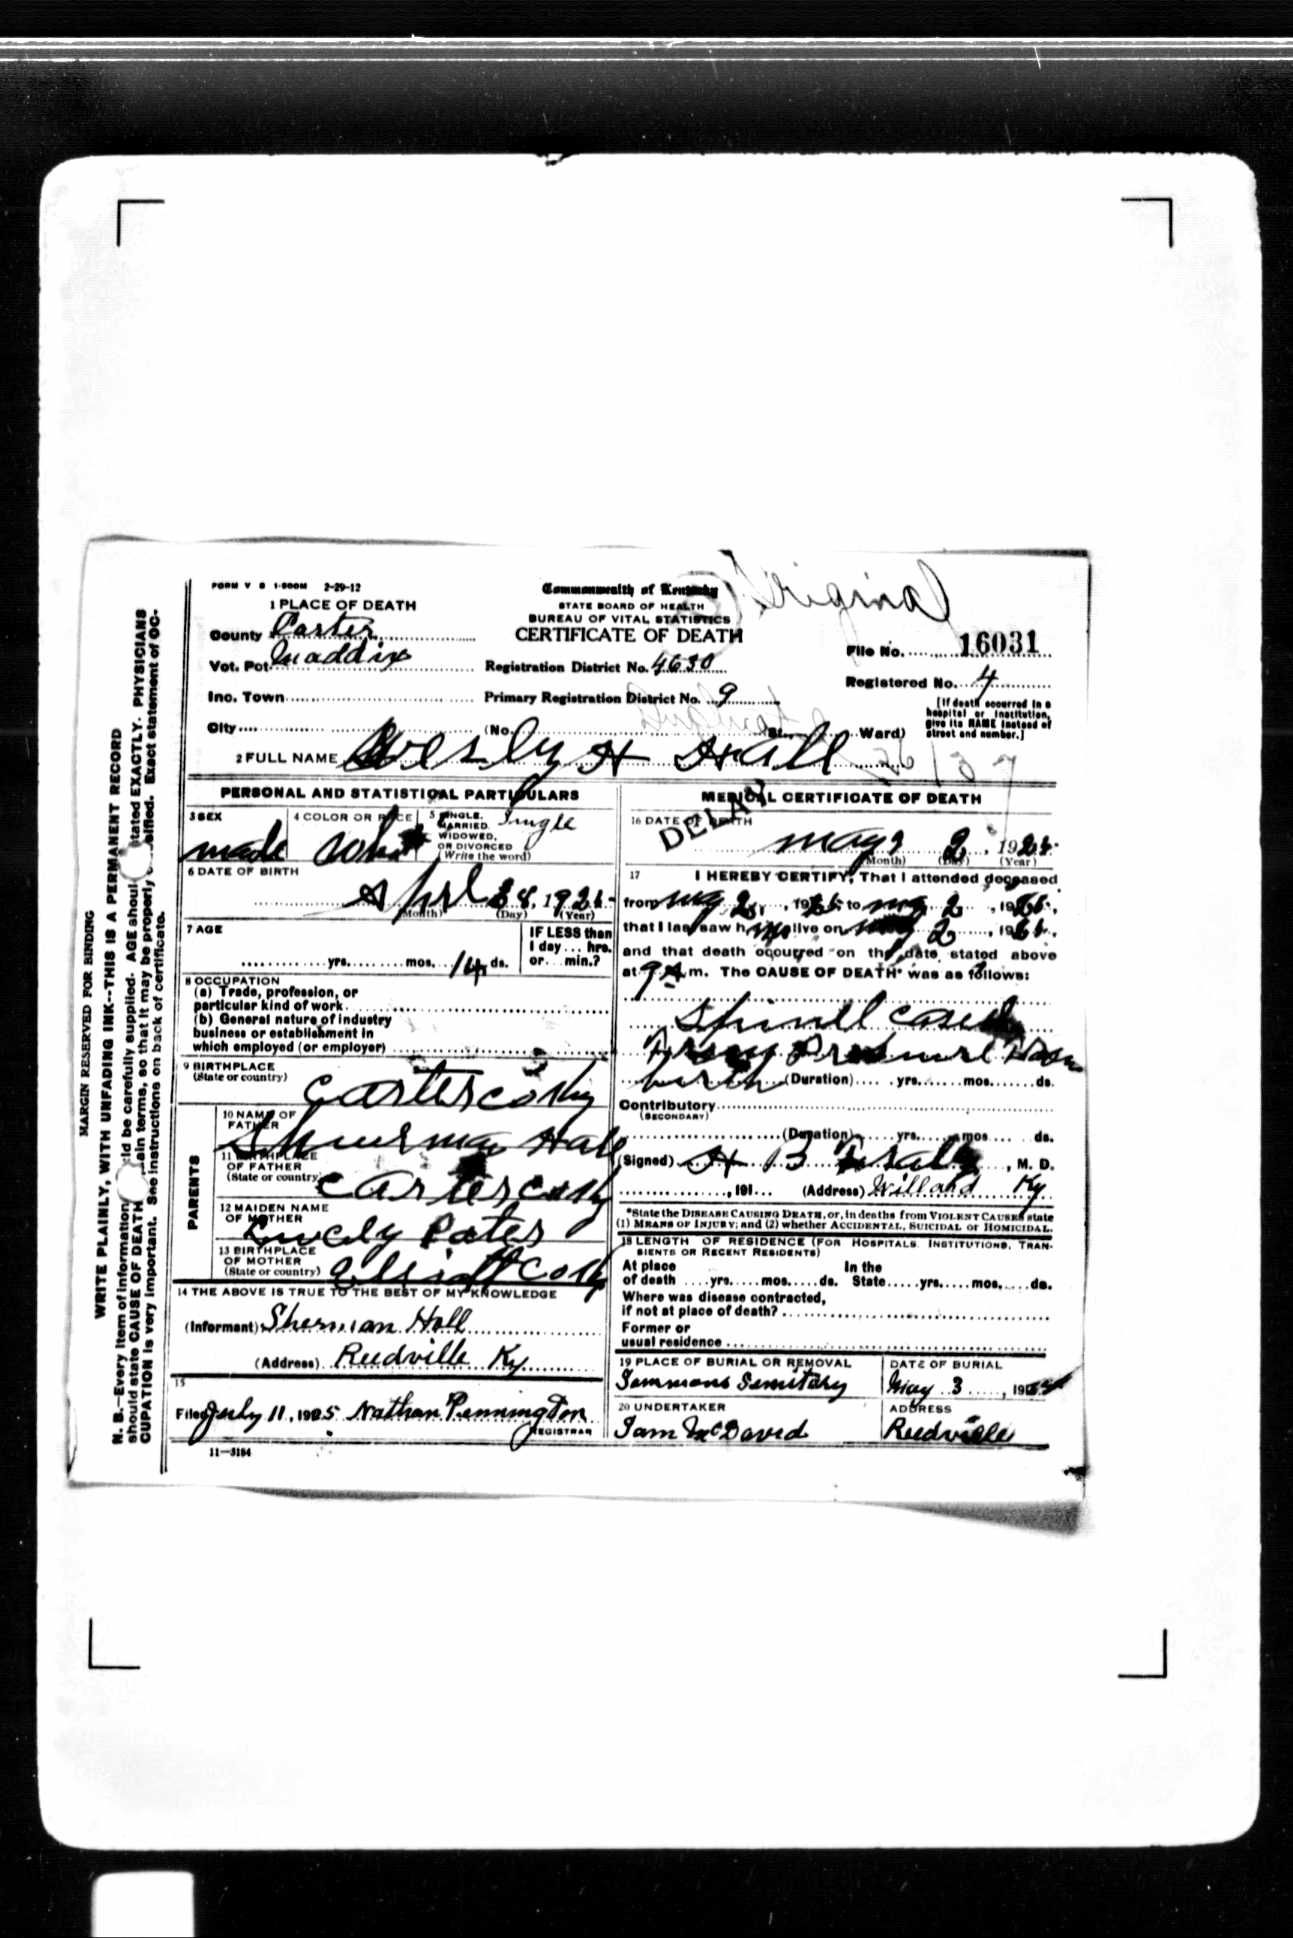 FORM V S 1-500M 2-29-12
Commonwealth of Kentucky
Original
STATE BOARD OF HEALTH
BUREAU OF VITAL STATISTICS
CERTIFICATE OF DEATH
1 PLACE OF DEATH
County Carter
Vot. Pct Maddix
Inc. Town
City
Registration District No. 4630
Primary Registration District No. 9
(No. St. Ward)
File No. 16031
Registered No. 4
[If death occurred in a hospital or institution, give its NAME instead of street and number.]
2 FULL NAME Wesly H Hall
PERSONAL AND STATISTICAL PARTICULARS
3 SEX
male
4 COLOR OR RACE
5 SINGLE, MARRIED, WIDOWED, OR DIVORCED (Write the word)
Single
6 DATE OF BIRTH
(Month) (Day) (Year)
7 AGE
yrs. mos. 14 ds.
IF LESS than 1 day ... hrs. or ... min.?
8 OCCUPATION
(a) Trade, profession, or particular kind of work
(b) General nature of industry business or establishment in which employed (or employer)
9 BIRTHPLACE
(State or country)
Carter co Ky
PARENTS
10 NAME OF FATHER
Hall
11 BIRTHPLACE OF FATHER
(State or country)
Carter co Ky
12 MAIDEN NAME OF MOTHER
13 BIRTHPLACE OF MOTHER
(State or country)
Elliott Co Ky
14 THE ABOVE IS TRUE TO THE BEST OF MY KNOWLEDGE
(Informant) Sherman Hall
(Address) Reedville Ky
15
Filed July 11, 1925 Nathan Pennington
REGISTRAR
11—3184
MEDICAL CERTIFICATE OF DEATH
DELAY
16 DATE OF DEATH
May 2, 192
(Month) (Day) (Year)
17 I HEREBY CERTIFY, That I attended deceased
from May 2, 19 to 2, 19
that I last saw h alive on 2, 19
and that death occurred on the date stated above
at 9 A m. The CAUSE OF DEATH* was as follows:
birth (Duration) yrs. mos. ds.
Contributory
(SECONDARY)
(Duration) yrs. mos. ds.
(Signed) H B , M. D.
, 191 (Address) Willard Ky
*State the DISEASE CAUSING DEATH, or, in deaths from VIOLENT CAUSES state
(1) MEANS OF INJURY; and (2) whether ACCIDENTAL, SUICIDAL or HOMICIDAL.
18 LENGTH OF RESIDENCE (FOR HOSPITALS, INSTITUTIONS, TRANSIENTS OR RECENT RESIDENTS)
At place of death yrs. mos. ds. In the State yrs. mos. ds.
Where was disease contracted,
if not at place of death?
Former or
usual residence
19 PLACE OF BURIAL OR REMOVAL
Semmons Semitary
DATE OF BURIAL
May 3, 192
20 UNDERTAKER
Sam McDavid
ADDRESS
Reedville
MARGIN RESERVED FOR BINDING
WRITE PLAINLY, WITH UNFADING INK--THIS IS A PERMANENT RECORD
N. B.—Every item of information should be carefully supplied. AGE should stated EXACTLY. PHYSICIANS
should state CAUSE OF DEATH plain terms, so that it may be properly classified. Exact statement of OC-
CUPATION is very important. See instructions on back of certificate.